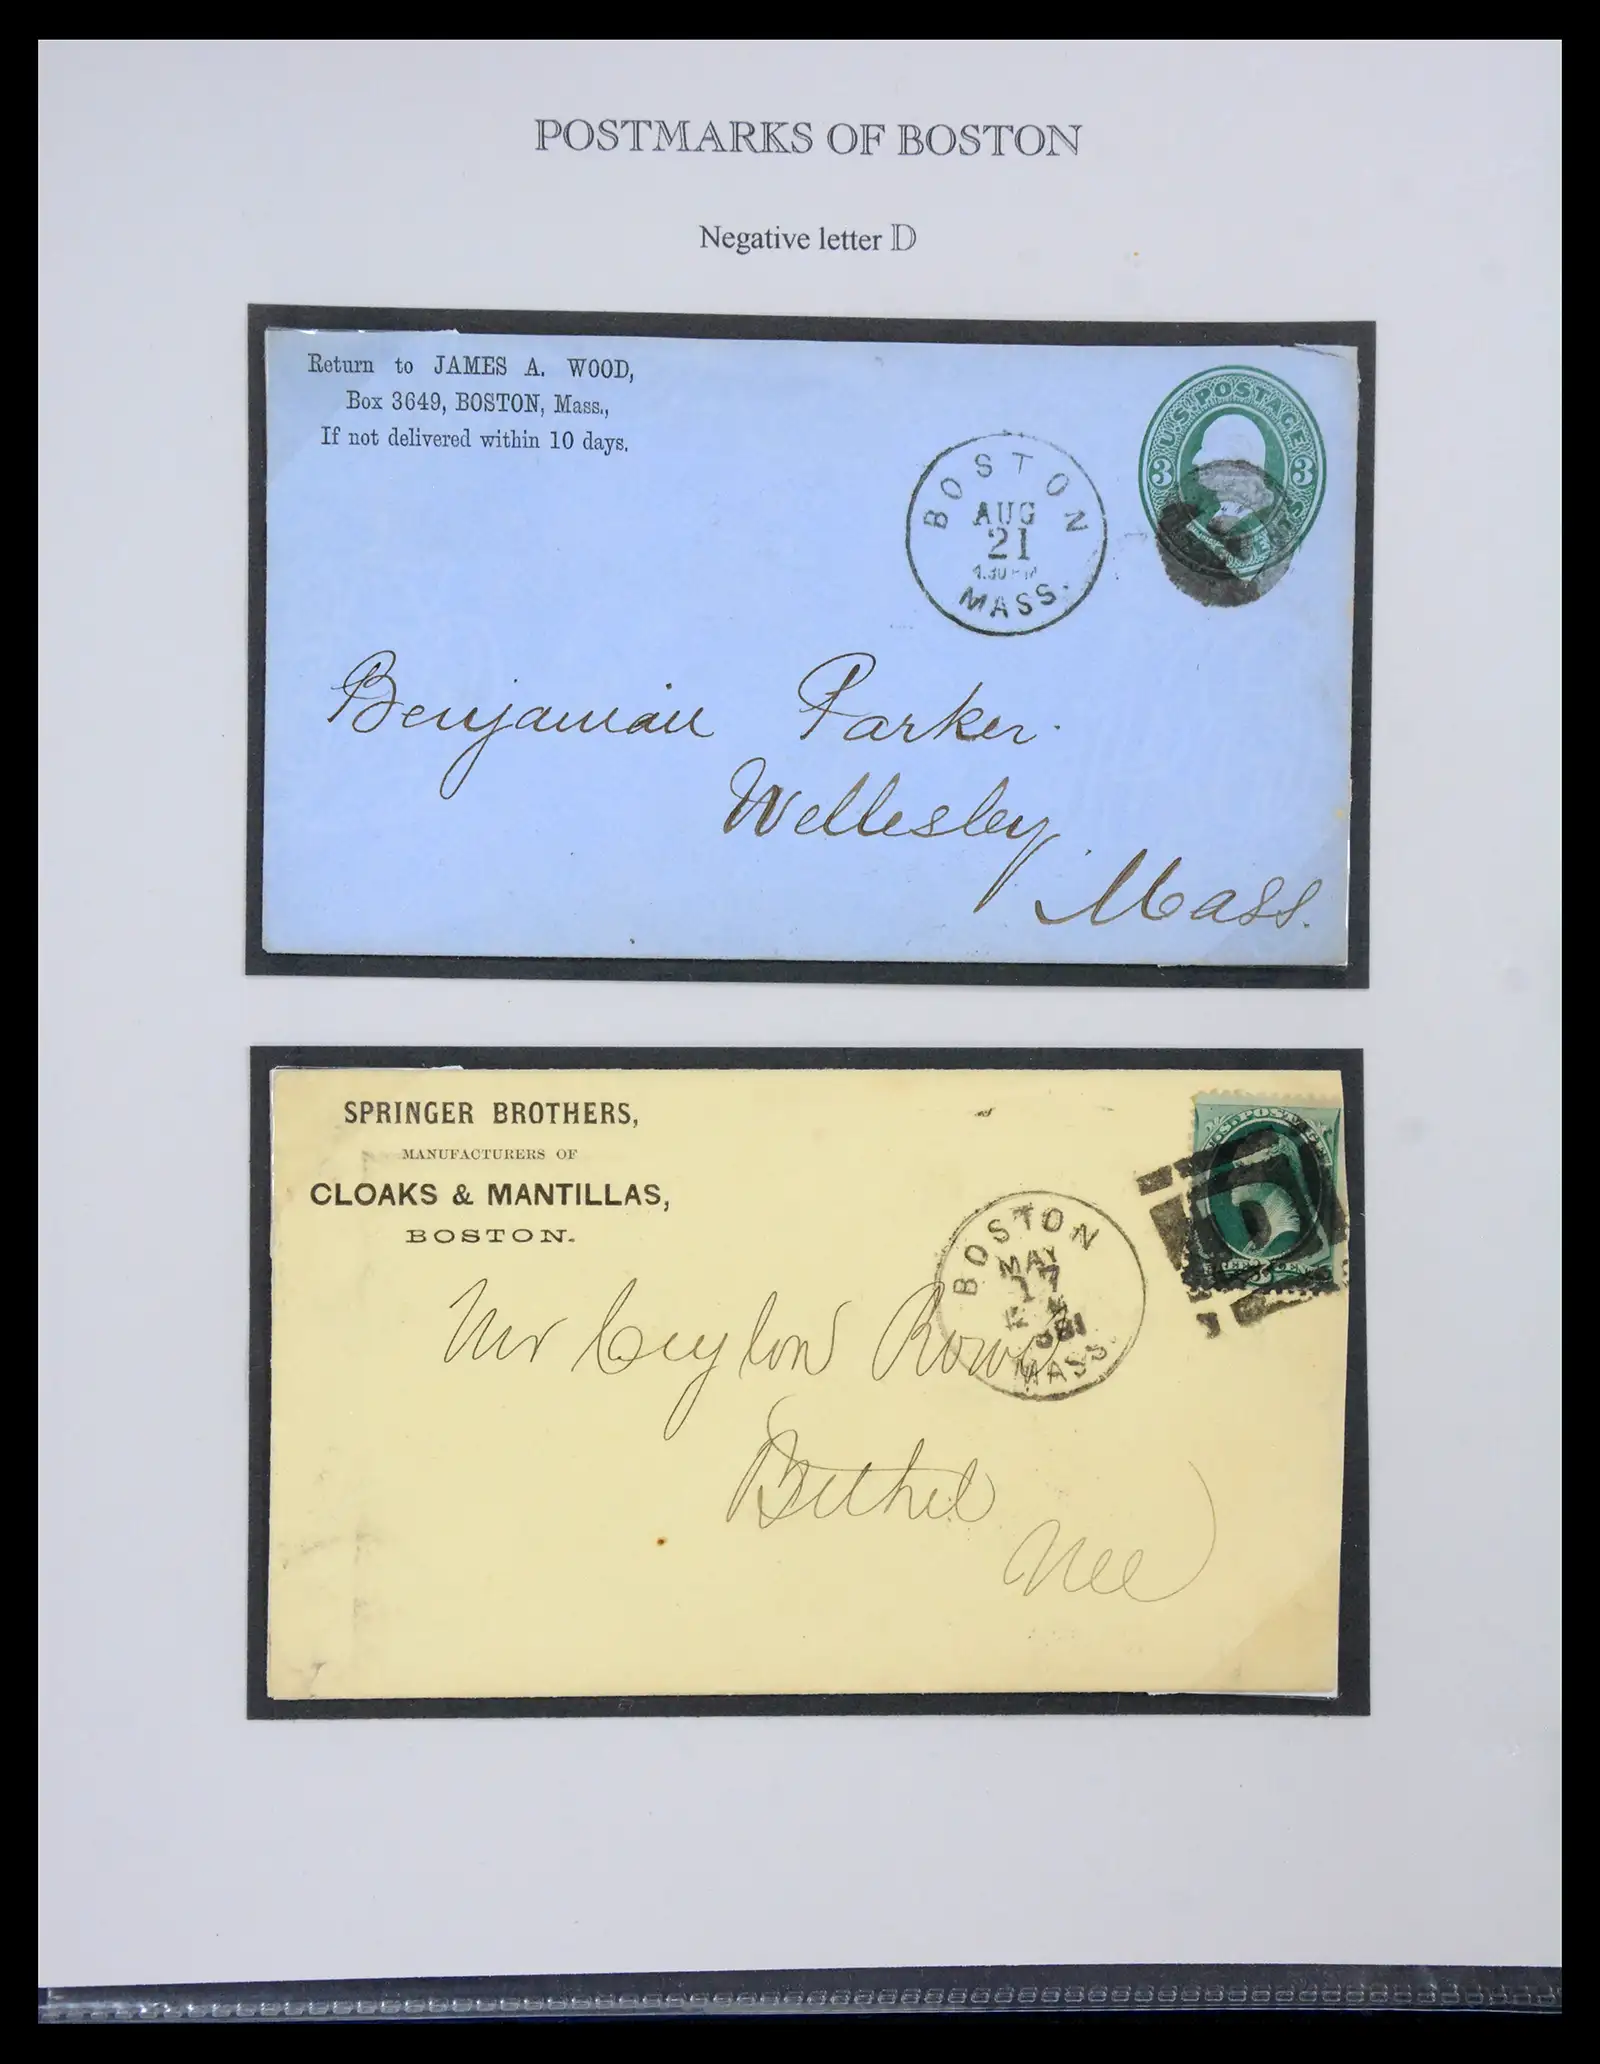 POSTMARKS OF BOSTON
Negative letter D
Return to JAMES A. WOOD,
Box 3649, BOSTON, Mass.,
If not delivered within 10 days.
U.S. POSTAGE
3 3
BOSTON
AUG
21
MASS.
Benjamin Parker.
Wellesley
Mass.
SPRINGER BROTHERS,
MANUFACTURERS OF
CLOAKS & MANTILLAS,
BOSTON.
U.S. POSTAGE
BOSTON
MAY
17
881
MASS.
Mr Ceylon Rowe
Bethel
Me